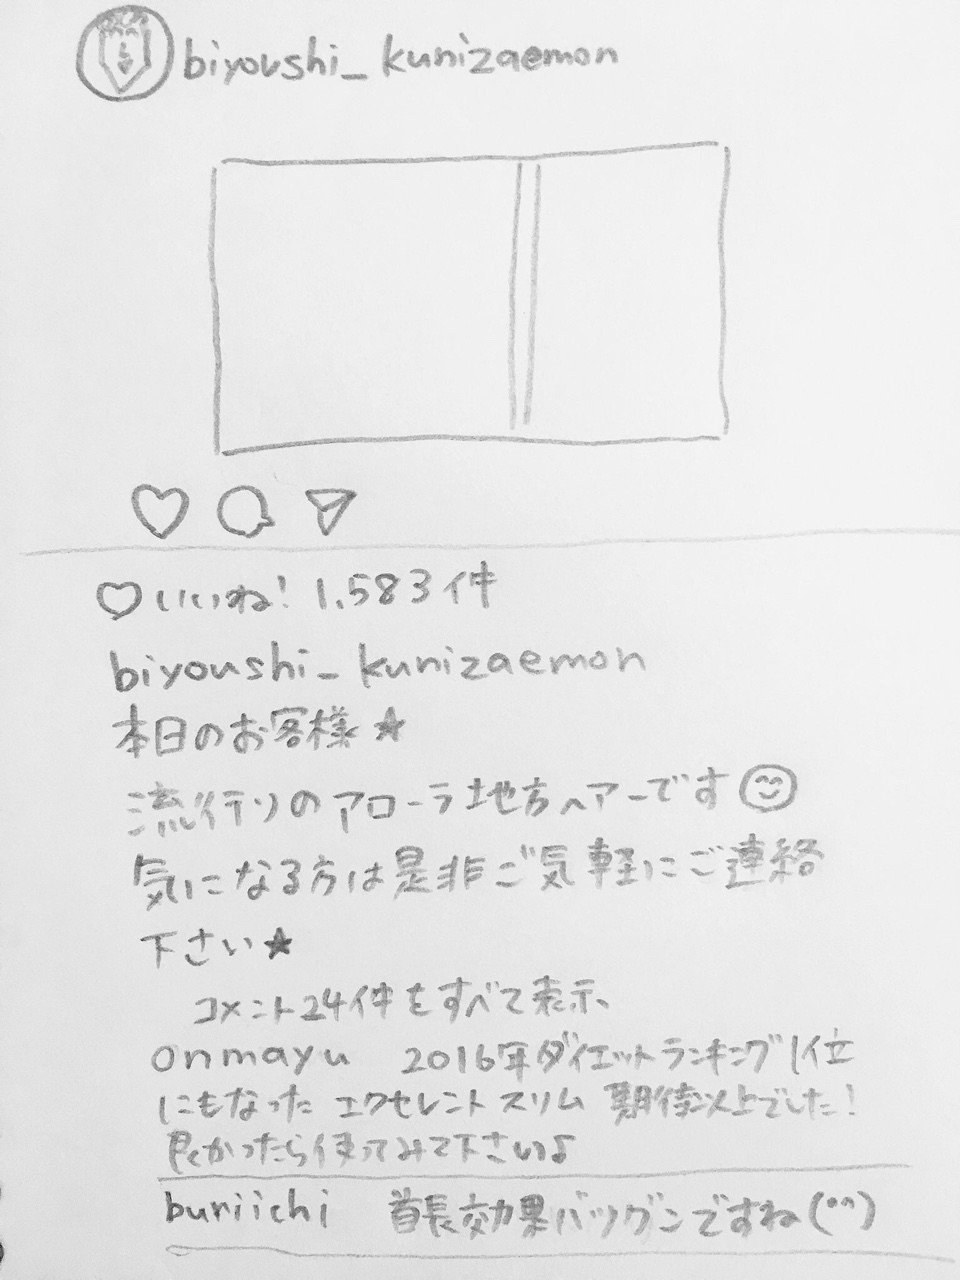 biyoushi_kunizaemon
♡いいね! 1.583件
biyoushi_kunizaemon
本日のお客様★
流行りのアローラ地方ヘアーです😊
気になる方は是非ご気軽にご連絡
下さい★
コメント24件をすべて表示、
onmayu 2016年ダイエットランキング1位
にもなった エクセレント スリム 期待以上でした!
良かったら使ってみて下さい♪
buriichi 首長効果バツグンですね(^^)